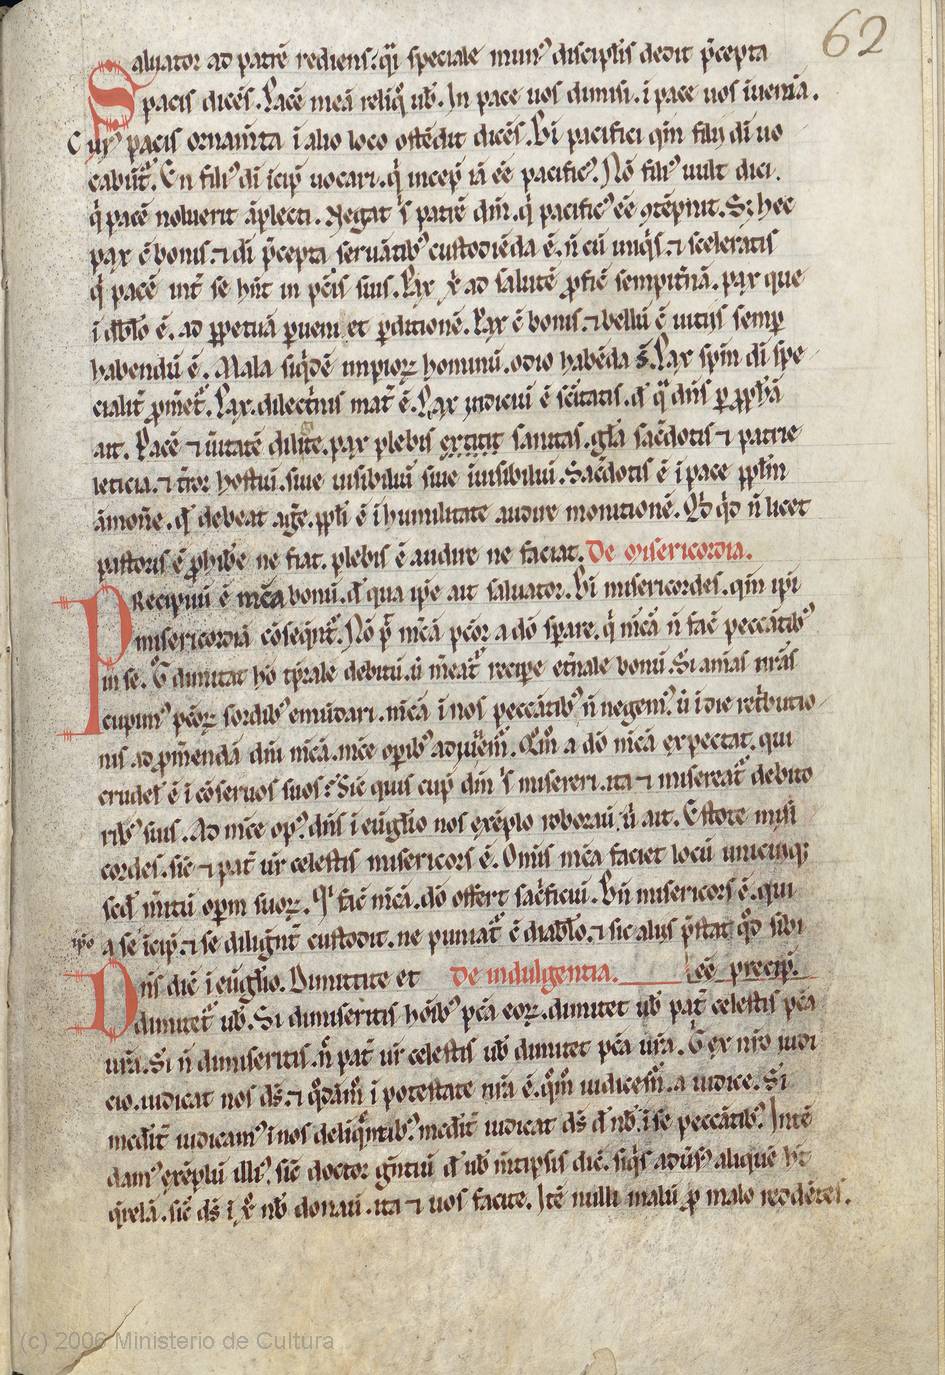 62
Saluator ad patrē rediens. q̄i speciale mun᾽ discipľis dedit p̄cepta
pacis dicēs. Pacē meā reliq̄ uƀ. In pace uos dimisi. ī pace uos īueniā.
Cui᾽ pacis ornam̄ta ī alio loco ostēdit dicēs. Bī pacifici qm̄ filii dī uo
cabūt᷑. En fili᾽ dī īcip̄ uocari. q̇ incep̄ iā ēē pacific᾽. Nō fili᾽ uult dici.
q̇ pacē noluerit āplecti. Negat s̄ patrē dm̄. q̇ pacific᾽ ēē ꝯtēpnit. S; hec
pax ē bonis. ⁊ dī p̄cepta seruātib᾽ custodiēda ē. n̄ cū iniq̇s. ⁊ sceleratis
q̇ pacē int̄ se hn̄t in pc̄is suis. Pax xp̄ī ad salutē ꝓfic̄ sempit̄nā. pax que
ī dbľo ē. ad ꝑpetuā ꝑuenit ꝑditionē. Pax ē bonis. ⁊ bellū ē uitijs semꝑ
habendū ē. Mala siq̇dē impioꝝ hominū. odio habēda s̄. Pax spm̄ dī spe
cialit̄ ꝓmet᷑. Pax. dilectiōis mat̄ ē. Pax indiciū ē sc̄itatis. de q̄ dn̄s ꝑ ꝓph̄ā
ait. Pacē ⁊ ūitatē diligite. pax plebis sanitas. gľa sac̄dotis ⁊ patrie
leticia. ⁊ t̄ror hostiū. siue uisibiliū siue īuisibiliū. Sac̄dotis ē ī pace ppľm
āmoñe. qđ debeat aḡe. ppľi ē ī humilitate audire monitionē. Qđ q̇d n̄ licet
pastoris ē ꝓhiƀe ne fiat. plebis ē audire ne faciat. De misericordia.
Precipuū ē mīca bonū. de qua ip̄e ait saluator. Bī misericordes. qm̄ ip̄i
misericordiā cōseq̄nt᷑. Nō p̄t mīcā pc̄or a dō sperare. q̇ mīcā n̄ fac̄ peccātib᾽
in se. g̊ dimittat hō tp̄rale debitū. ut m̄eat᷑ recipe et̄nale bonū. Si animas nr̄as
cupim᾽ pc̄oꝝ sordib᾽ emūdari. mīcā ī nos peccātib᾽ n̄ negem᾽. ut ī die ret̄butio
nis ad ꝓm̄endā dn̄i mīcā. mīce opib᾽ adiuuem᷑. Qm̄ a dō mīcā expectat. qui
crudel᾽ ē ī cōseruos suos? Sic̄ quis cupit dm̄ s̄ misereri. ita ⁊ misereat᷑ debito
rib᾽ suis. Ad mīce op᾽. dn̄s ī eūgľio nos exēplo roborauit ait. Estote mis̄i
cordes. sic̄ ⁊ pat̄ ur̄ celestis misericors ē. Omis mīca faciet locū unicuiq;
scđ m̄itū opm̄ suoꝝ. Qi facit mīcā. dō offert sac̄ficiū. Bn̄ misericors ē. qui
ip̄o a se īcip̄. ⁊ se diliḡnt̄ custodit. ne puniat᷑ ē diabľo. ⁊ sic alijs p̄stat qđ sibi
Dn̄s dic̄ ī eūgľio. Dimittite et De indulgentia. ēē precip̄.
dimittet᷑ uƀ. Si dimiseritis hōib᾽ pc̄a eoꝝ. dimittet uƀ pat̄ celestis pc̄a
ur̄a. Si n̄ dimiseritis. n̄ pat̄ ur̄ celestis uƀ dimittet pc̄a ur̄a. g̊ ex nr̄o iudi
cio. iudicat nos ds̄. ⁊ q̊dāmº ī potestate nr̄a ē. qm̄ iudicem᷑. a iudice. Si
m̄edit̄ iudicam᾽ ī nos deliq̄ntib᾽. medit̄ iudicat ds̄ de nƀ. ī se peccātib᾽. Intē
dam᾽ exēplū ill᾽. sic̄ doctor gn̄tiū de uƀ metipsis dic̄. siq̇s adūs᾽ aliquē ht̄
q̄relā. sic̄ ds̄ ī xp̄ō nƀ donauit. ita ⁊ uos facite. Itē nulli malū ꝓ malo reddētes.
(c) 2006 Ministerio de Cultura